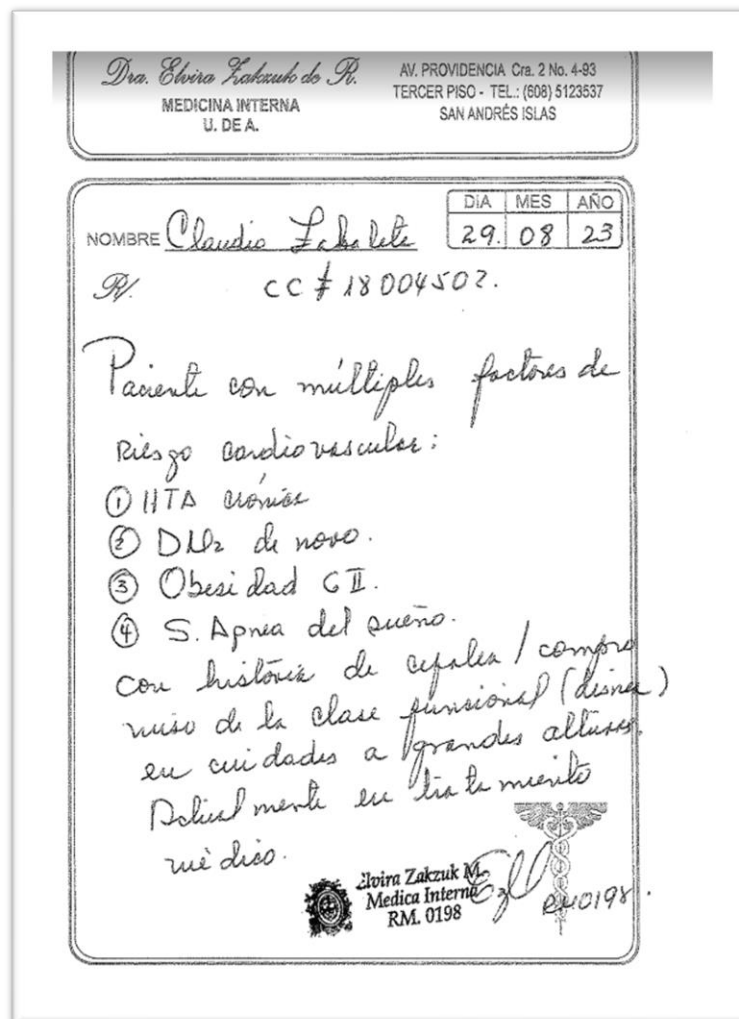 Dra. Elvira Zakzuk de R.
MEDICINA INTERNA
U. DE A.
AV. PROVIDENCIA Cra. 2 No. 4-93
TERCER PISO - TEL.: (608) 5123537
SAN ANDRÉS ISLAS
DIA MES AÑO
29. 08 23
NOMBRE Claudio
R/. CC # 18004502.
Paciente con múltiples factores de
Riesgo cardiovascular:
① HTA crónica
② DM2 de novo.
③ Obesidad G II.
④ S. Apnea del sueño.
con historia de cefalea / compro
miso de la clase funsional (disnea)
en cuidades a grandes alturas.
Actualmente en tratamiento
médico.
Elvira Zakzuk M.
Medica Interna
RM. 0198
RM0198.